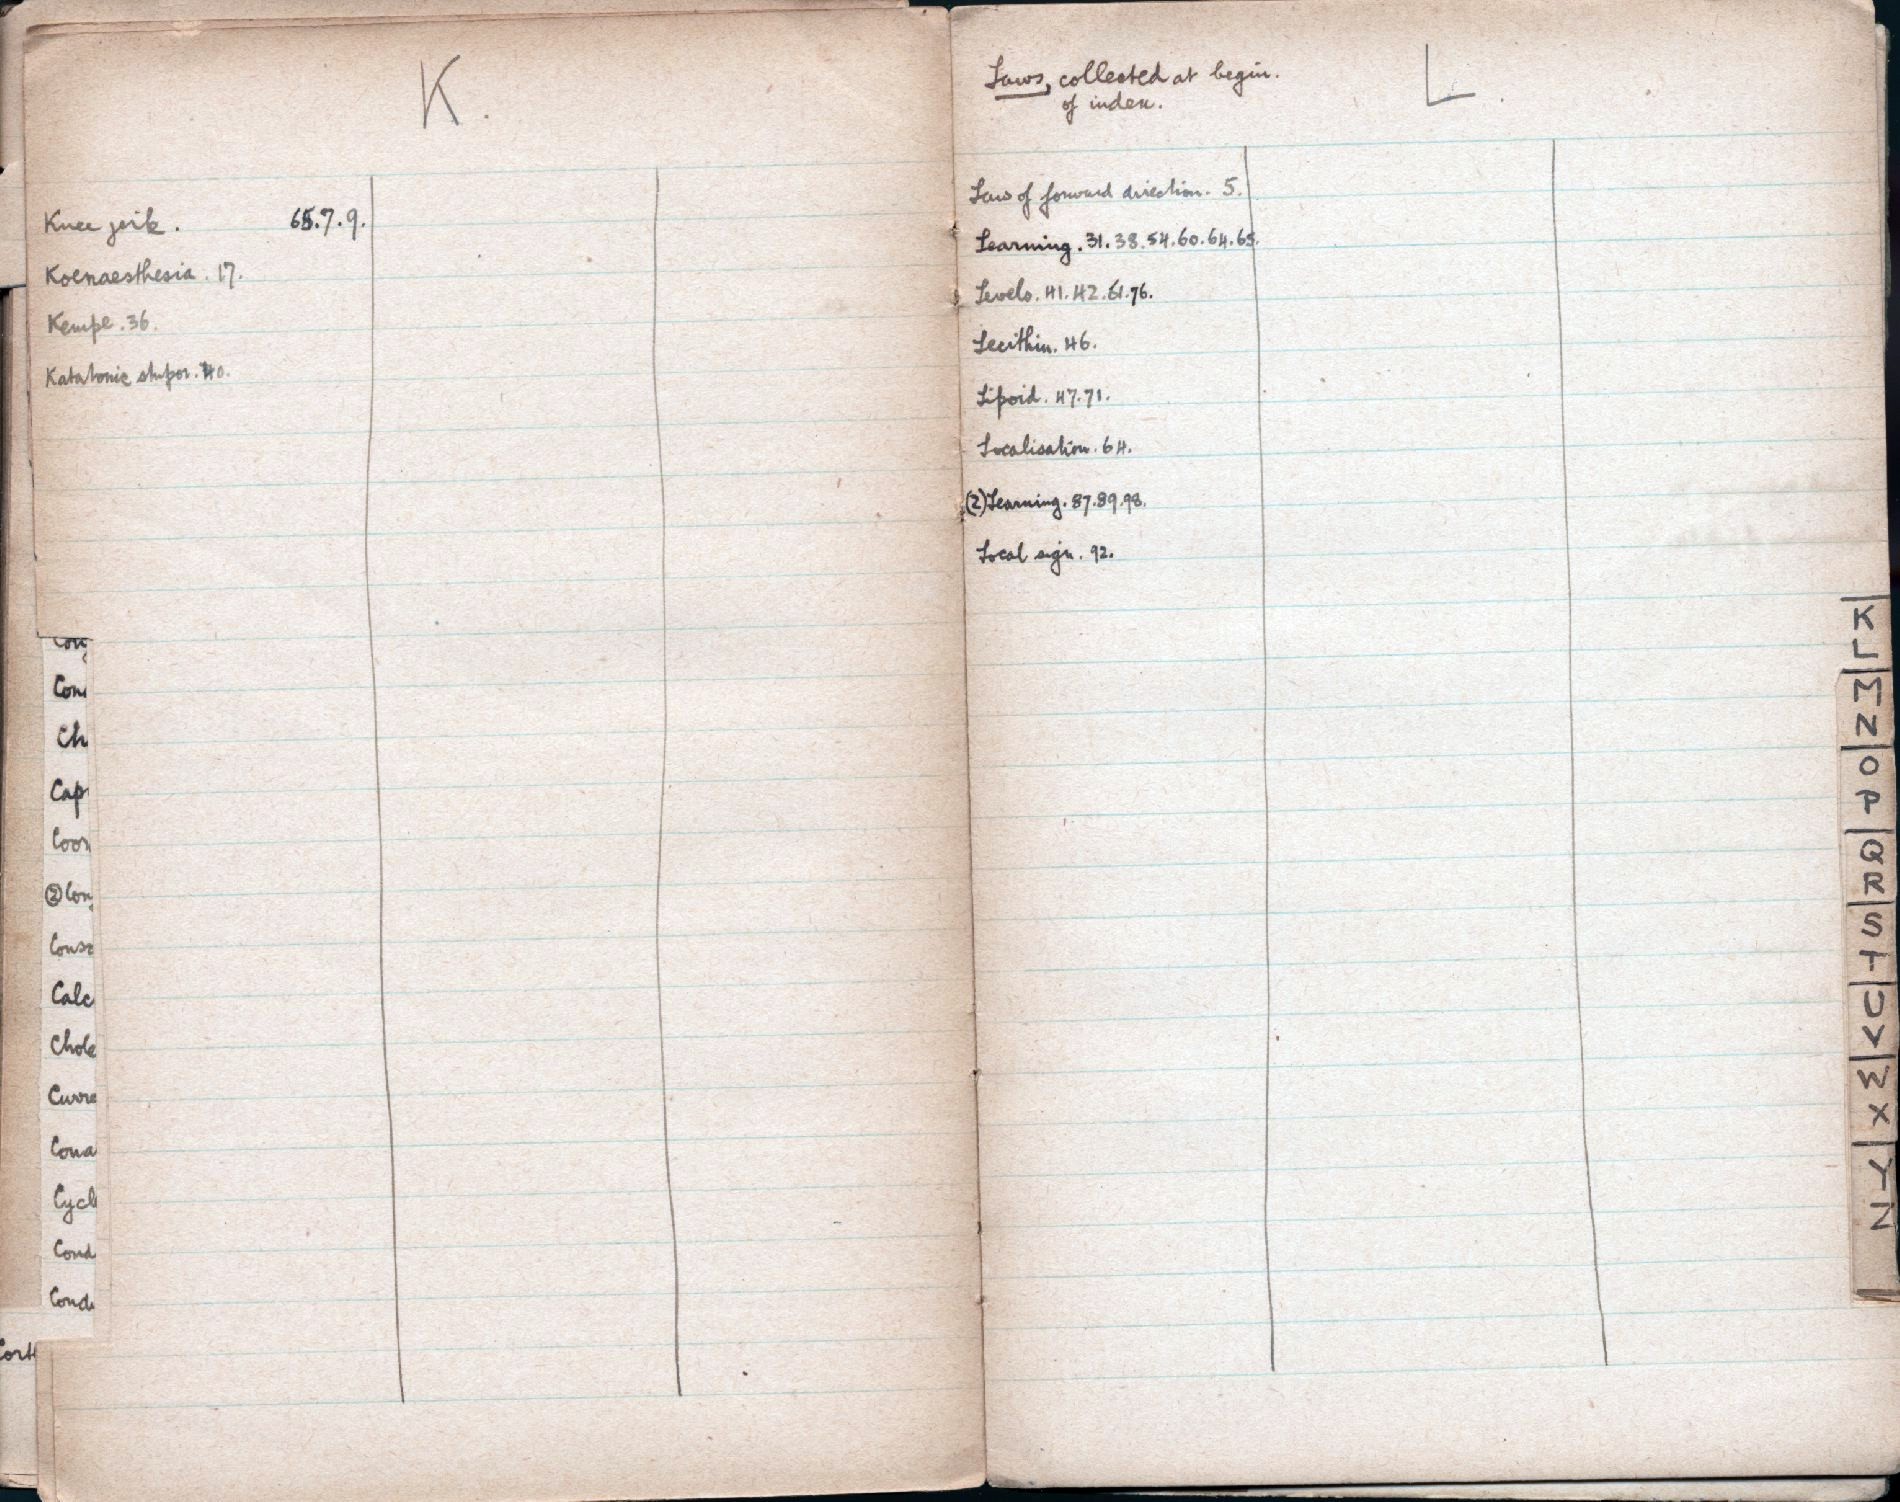 K.
Knee jerk. 65.7.9.
Koenaesthesia. 17.
Kempe. 36.
Katatonic stupor. 40.
Con
Ch
Cap
Coor
② Con
Cons
Calc
Chole
Curre
Cona
Cycl
Cond
Cond
Cort
L.
Laws, collected at begin.
of index.
Law of forward direction. 5.
Learning. 31. 38. 54. 60. 64. 65.
Levels. 41. 42. 61. 76.
Lecithin. 46.
Lipoid. 47. 71.
Localisation. 64.
(2) Learning. 87. 89. 98.
Local sign. 92.
K
L
M
N
O
P
Q
R
S
T
U
V
W
X
Y
Z